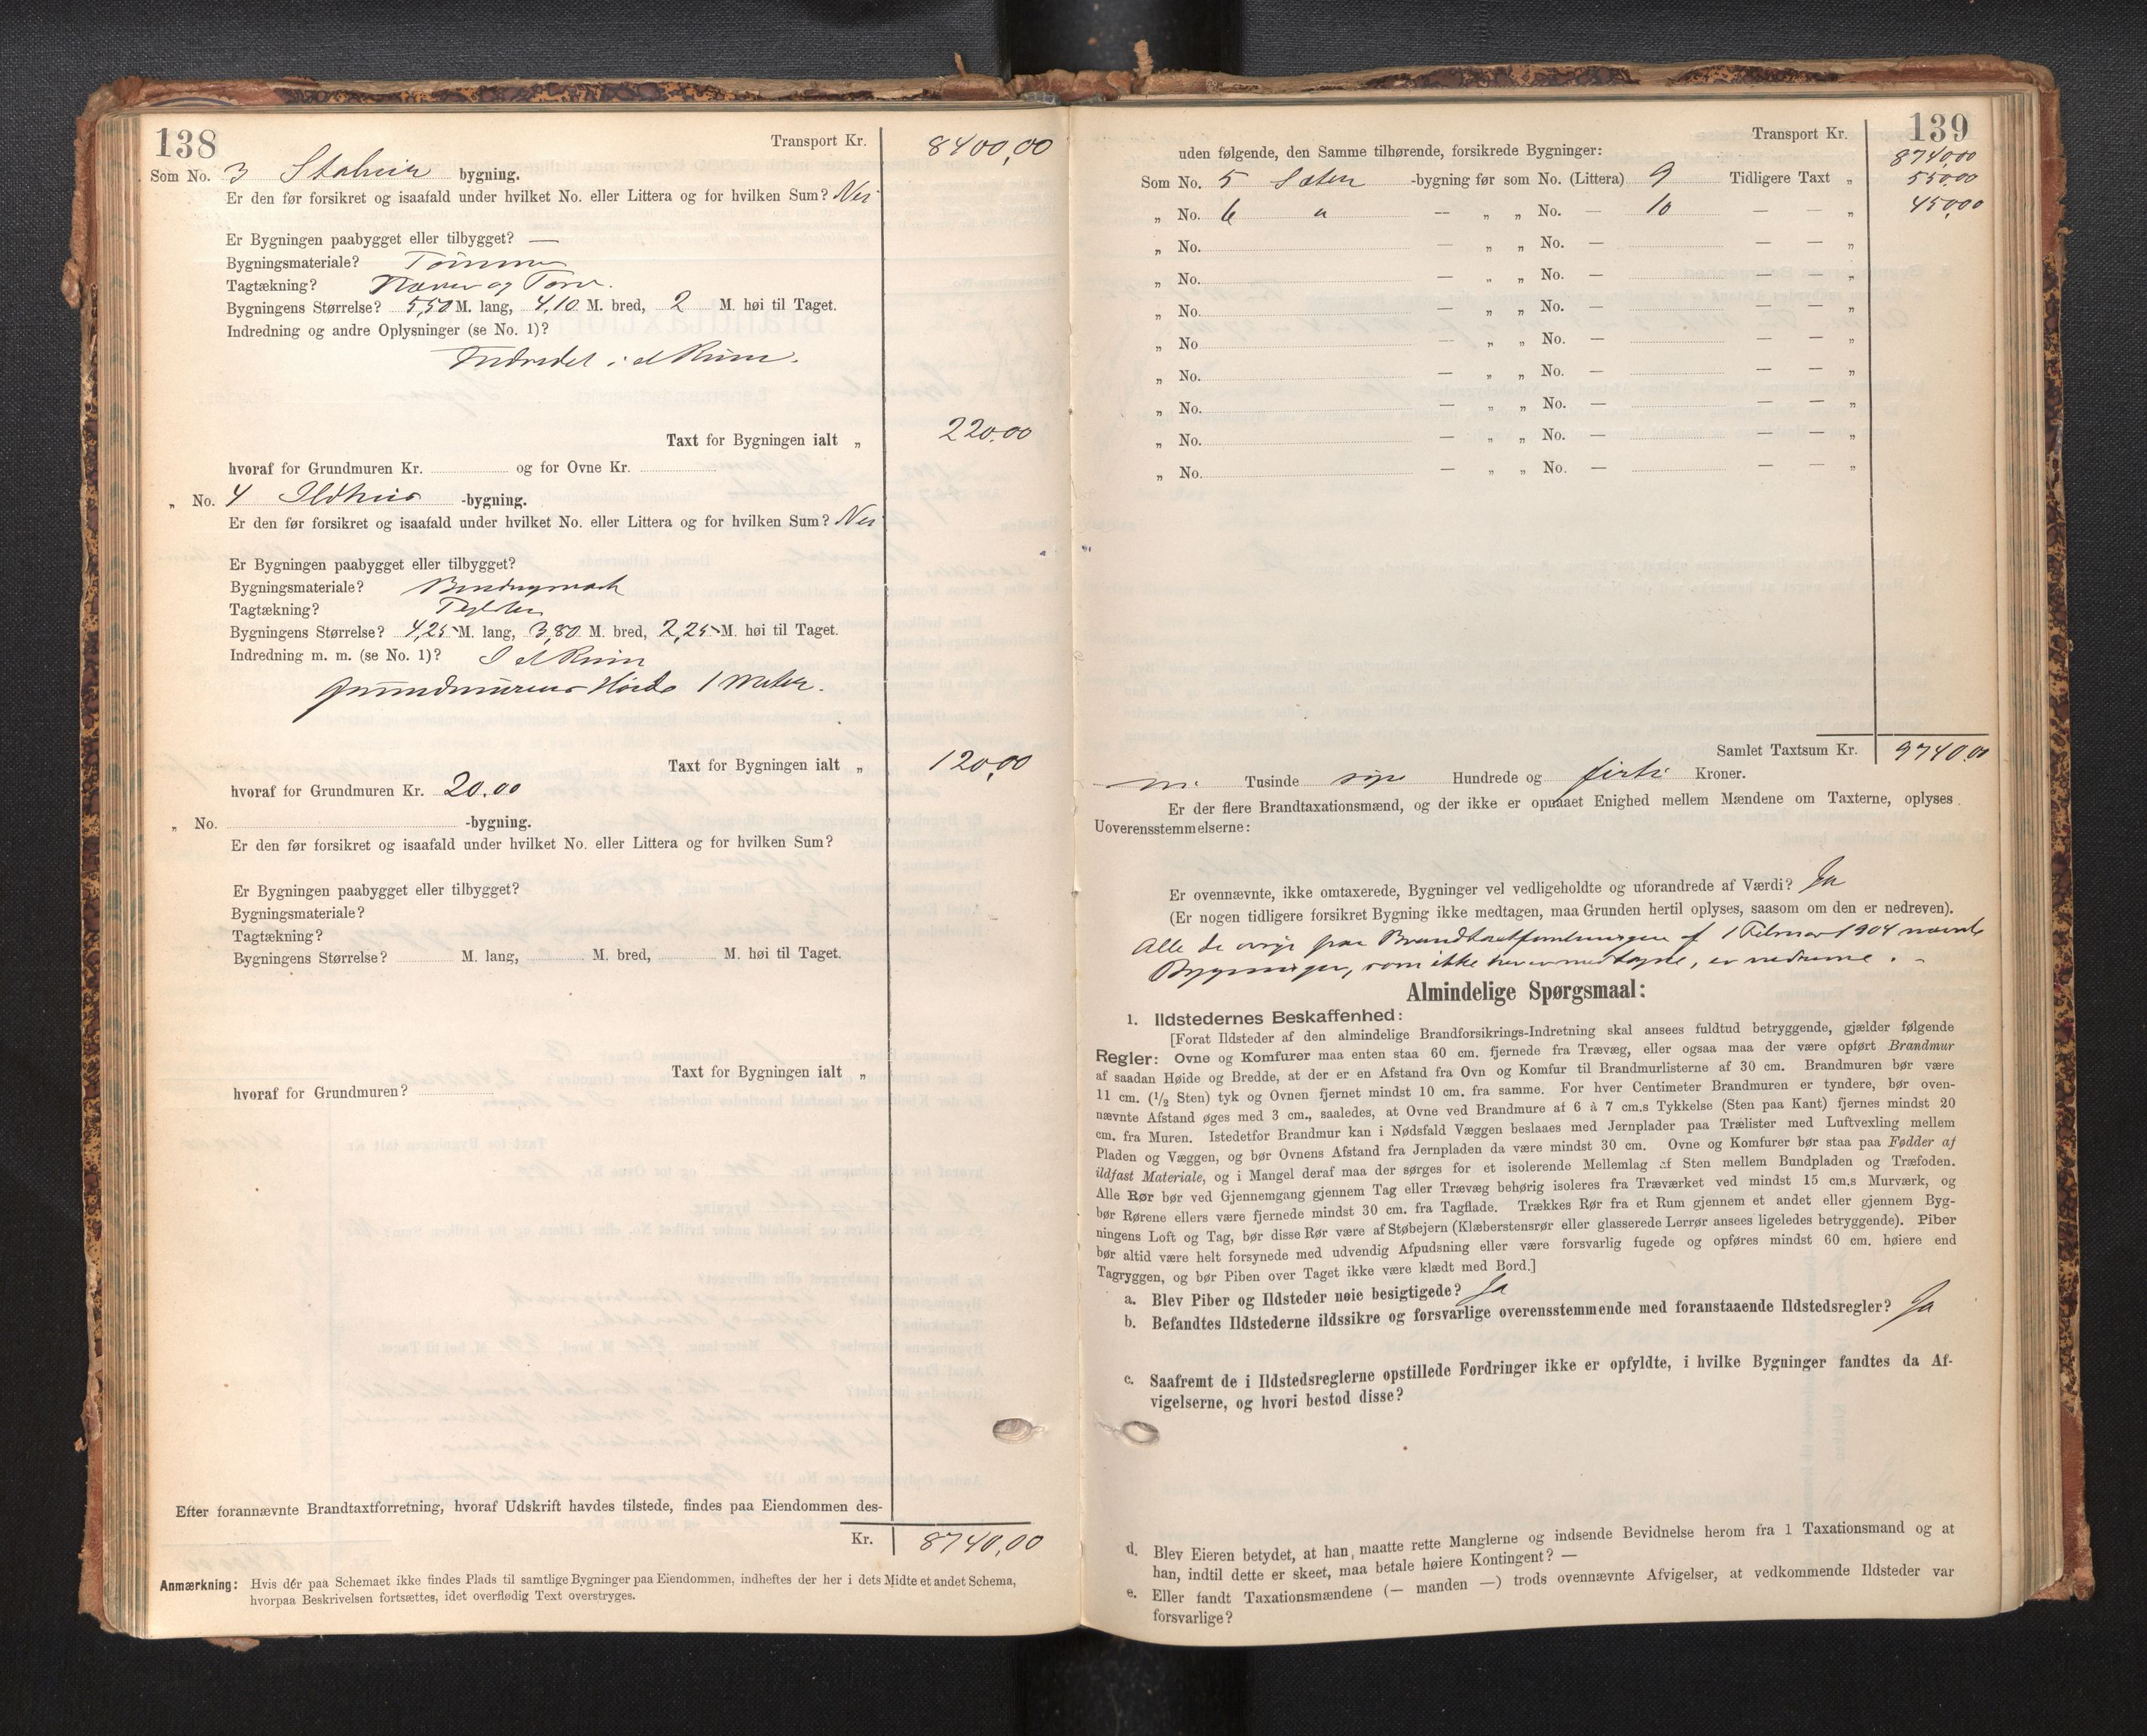 138
Transport Kr. 8400,00
Som No. 3 Stabur bygning.
Er den før forsikret og isaafald under hvilket No. eller Littera og for hvilken Sum? Nei
Er Bygningen paabygget eller tilbygget? —
Bygningsmateriale? Tømmer
Tagtækning? Næver og Torv.
Bygningens Størrelse? 5,50 M. lang, 4,10 M. bred, 2 M. høi til Taget.
Indredning og andre Oplysninger (se No. 1)?
Indredet i et Rum.
Taxt for Bygningen ialt „ 220,00
hvoraf for Grundmuren Kr. og for Ovne Kr.
„ No. 4 Ildhus -bygning.
Er den før forsikret og isaafald under hvilket No. eller Littera og for hvilken Sum? Nei
Er Bygningen paabygget eller tilbygget?
Bygningsmateriale? Bindingsverk
Tagtækning? Teglsten
Bygningens Størrelse? 4,25 M. lang, 3,80 M. bred, 2,25 M. høi til Taget.
Indredning m. m. (se No. 1)? I et Rum
Grundmurens Høide 1 Meter.
Taxt for Bygningen ialt „ 120,00
hvoraf for Grundmuren Kr. 20.00
„ No. -bygning.
Er den før forsikret og isaafald under hvilket No. eller Littera og for hvilken Sum?
Er Bygningen paabygget eller tilbygget?
Bygningsmateriale?
Tagtækning?
Bygningens Størrelse? M. lang, M. bred, M. høi til Taget.
Taxt for Bygningen ialt „
hvoraf for Grundmuren?
Efter forannævnte Brandtaxtforretning, hvoraf Udskrift havdes tilstede, findes paa Eiendommen des-
Kr. 8740,00
Anmærkning: Hvis dér paa Schemaet ikke findes Plads til samtlige Bygninger paa Eiendommen, indheftes der her i dets Midte et andet Schema,
hvorpaa Beskrivelsen fortsættes, idet overflødig Text overstryges.
139
Transport Kr. 8740,00
uden følgende, den Samme tilhørende, forsikrede Bygninger:
Som No. 5 Sæter -bygning før som No. (Littera) 9 Tidligere Taxt „ 550,00
„ No. 6 " — „ „ No. — 10 — — „ 450,00
„ No. — „ „ No. — — — „
„ No. — „ „ No. — — — „
„ No. — „ „ No. — — — „
„ No — „ „ No. — — — „
„ No. — „ „ No. — — — „
„ No. — „ „ No. — — — „
„ No. — „ „ No. — — — „
„ No. — „ „ No. — — — „
Samlet Taxtsum Kr. 9740,00
ni Tusinde syv Hundrede og firti Kroner.
Er der flere Brandtaxationsmænd, og der ikke er opnaaet Enighed mellem Mændene om Taxterne, oplyses
Uoverensstemmelserne:
Er ovennævnte, ikke omtaxerede, Bygninger vel vedligeholdte og uforandrede af Værdi? Ja
(Er nogen tidligere forsikret Bygning ikke medtagen, maa Grunden hertil oplyses, saasom om den er nedreven).
Alle de øvrige paa Brandtaxtforretningen af 1 Februar 1904 nævnte
Bygninger, som ikke her er medtagne, er nedrevne. -
Almindelige Spørgsmaal:
1. Ildstedernes Beskaffenhed:
[Forat Ildsteder af den almindelige Brandforsikrings-Indretning skal ansees fuldtud betryggende, gjælder følgende
Regler: Ovne og Komfurer maa enten staa 60 cm. fjernede fra Trævæg, eller ogsaa maa der være opført Brandmur
af saadan Høide og Bredde, at der er en Afstand fra Ovn og Komfur til Brandmurlisterne af 30 cm. Brandmuren bør være
11 cm. (1/2 Sten) tyk og Ovnen fjernet mindst 10 cm. fra samme. For hver Centimeter Brandmuren er tyndere, bør oven-
nævnte Afstand øges med 3 cm., saaledes, at Ovne ved Brandmure af 6 à 7 cm.s Tykkelse (Sten paa Kant) fjernes mindst 20
cm. fra Muren. Istedetfor Brandmur kan i Nødsfald Væggen beslaaes med Jernplader paa Trælister med Luftvexling mellem
Pladen og Væggen, og bør Ovnens Afstand fra Jernpladen da være mindst 30 cm. Ovne og Komfurer bør staa paa Fødder af
ildfast Materiale, og i Mangel deraf maa der sørges for et isolerende Mellemlag af Sten mellem Bundpladen og Træfoden.
Alle Rør bør ved Gjennemgang gjennem Tag eller Trævæg behørig isoleres fra Træværket ved mindst 15 cm.s Murværk, og
bør Rørene ellers være fjernede mindst 30 cm. fra Tagflade. Trækkes Rør fra et Rum gjennem et andet eller gjennem Byg-
ningens Loft og Tag, bør disse Rør være af Støbejern (Klæberstensrør eller glasserede Lerrør ansees ligeledes betryggende). Piber
bør altid være helt forsynede med udvendig Afpudsning eller være forsvarlig fugede og opføres mindst 60 cm. høiere end
Tagryggen, og bør Piben over Taget ikke være klædt med Bord.]
a. Blev Piber og Ildsteder nøie besigtigede? Ja
b. Befandtes Ildstederne ildssikre og forsvarlige overensstemmende med foranstaaende Ildstedsregler? Ja
c. Saafremt de i Ildstedsreglerne opstillede Fordringer ikke er opfyldte, i hvilke Bygninger fandtes da Af-
vigelserne, og hvori bestod disse?
d. Blev Eieren betydet, at han, maatte rette Manglerne og indsende Bevidnelse herom fra 1 Taxationsmand og at
han, indtil dette er skeet, maa betale høiere Kontingent? —
e. Eller fandt Taxationsmændene (— manden —) trods ovennævnte Afvigelser, at vedkommende Ildsteder var
forsvarlige?